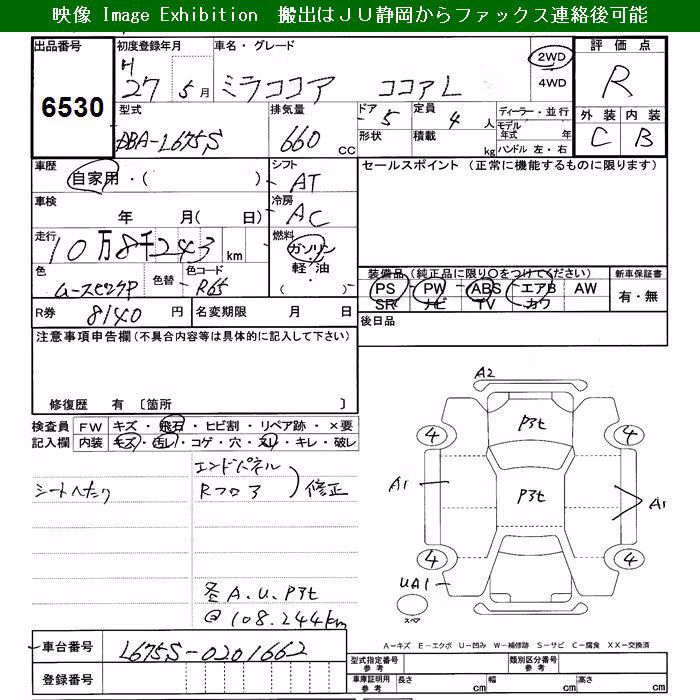 映像 Image Exhibition 搬出はＪＵ静岡からファックス連絡後可能
出品番号
6530
初度登録年月
H 27 5 月
車名・グレード
ミラココア ココアL
2WD
4WD
評価点
R
外装 内装
C B
型式
DBA-L675S
排気量
660 CC
ドア・ 5
形状
定員 4 人
積載 kg
ディーラー・並行
モデル年式 年
ハンドル 左・右
車歴
自家用・( )
シフト
AT
車検
年 月( 日)
冷房
AC
走行
10万8千243 km
燃料
ガソリン
軽油
( )
色
ムースピンクP
色替
色コード
R65
R券 8140 円
名変期限 月 日
セールスポイント (正常に機能するものに限ります)
装備品(純正品に限り○をつけてください)
新車保証書
PS PW ABS エアB AW
SR ナビ TV カワ
有・無
後日品
注意事項申告欄(不具合内容等は具体的に記入して下さい)
修復歴 有 〔箇所 〕
検査員記入欄
FW キズ・飛石・ヒビ割・リペア跡・×要
内装 キズ・汚レ・コゲ・穴・スレ・キレ・破レ
シートへたり
エンドパネル
Rフロア
修正
各A.U.Pヌセ
@108.244km
A2
Pヌセ
4 4
Pヌセ
A1
A1
4 4
UA1
スペア
A－キズ E－エクボ U－凹み W－補修跡 S－サビ C－腐食 XX－交換済
車台番号
L675S-0201662
登録番号
型式指定番号参考
類別区分番号参考
車庫証明用参考
長さ cm
幅 cm
高さ cm